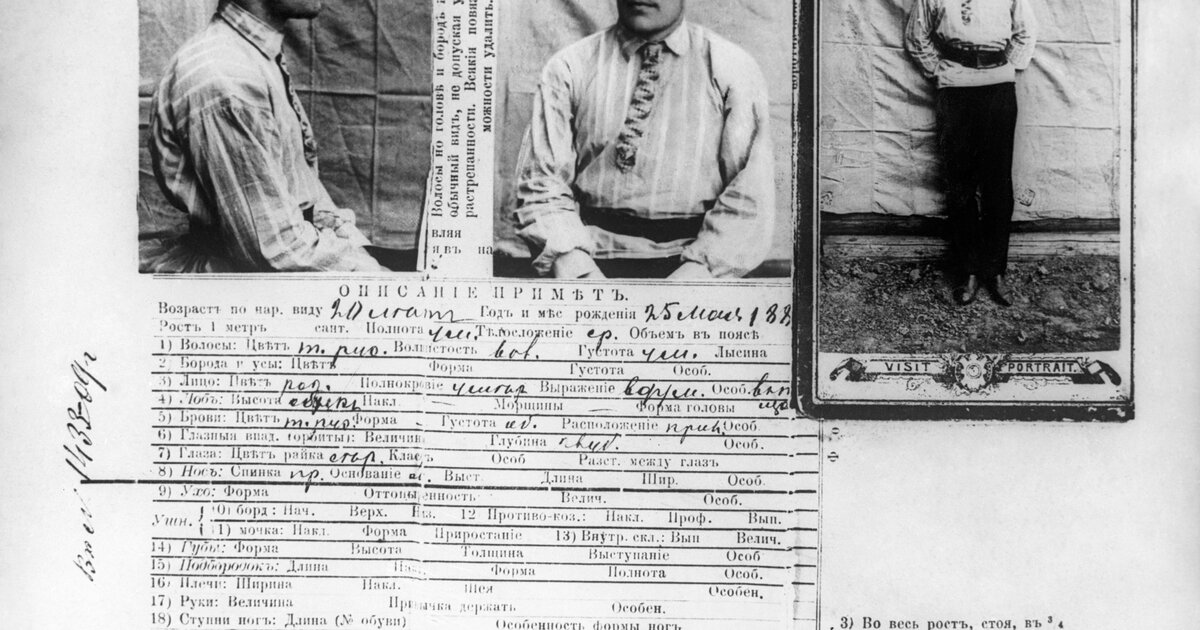 Волосы по головѣ и бородѣ
обычный видъ, не допуская
растрепанности. Всякія
можности удалить.
вляя
я въ на
ОПИСАНІЕ ПРИМѢТЪ.
Возрастъ по нар. виду 20 лѣтъ Годъ и мѣс рожденія 25 Мая 188
Ростъ 1 метръ сант. Полнота ум. Тѣлосложеніе ср. Объемъ въ поясѣ
1) Волосы: Цвѣтъ т. рус. Волнистость вол. Густота ум. Лысина
2) Борода и усы: Цвѣтъ Форма Густота Особ.
3) Лицо: Цвѣтъ роз. Полнокровіе Выраженіе вдум. Особ.
4) Лобъ: Высота Накл. Морщины Форма головы
5) Брови: Цвѣтъ т. рус Форма Густота Расположеніе Особ.
6) Глазныя впад. (орбиты): Величин Глубина Особ.
7) Глаза: Цвѣтъ райка Клас Особ Разст. между глазъ
8) Носъ: Спинка пр. Основаніе Выст. Длина Шир. Особ.
9) Ухо: Форма Оттопыренность Велич. Особ.
Ушн. 10) борд: Нач. Верх. Низ. 12 Противо-коз.: Накл. Проф. Вып.
11) мочка: Накл. Форма Приростаніе 13) Внутр. скл.: Вып Велич.
14) Губы: Форма Высота Толщина Выступаніе Особ
15) Подбородокъ: Длина Нак. Форма Полнота Особ.
16) Плечи: Ширина Накл. Шея Особен.
17) Руки: Величина Привычка держать Особен.
18) Ступни ногъ: Длина (№ обуви) Особенность формы ногъ
VISIT PORTRAIT.
3) Во весь ростъ, стоя, въ ³/₄